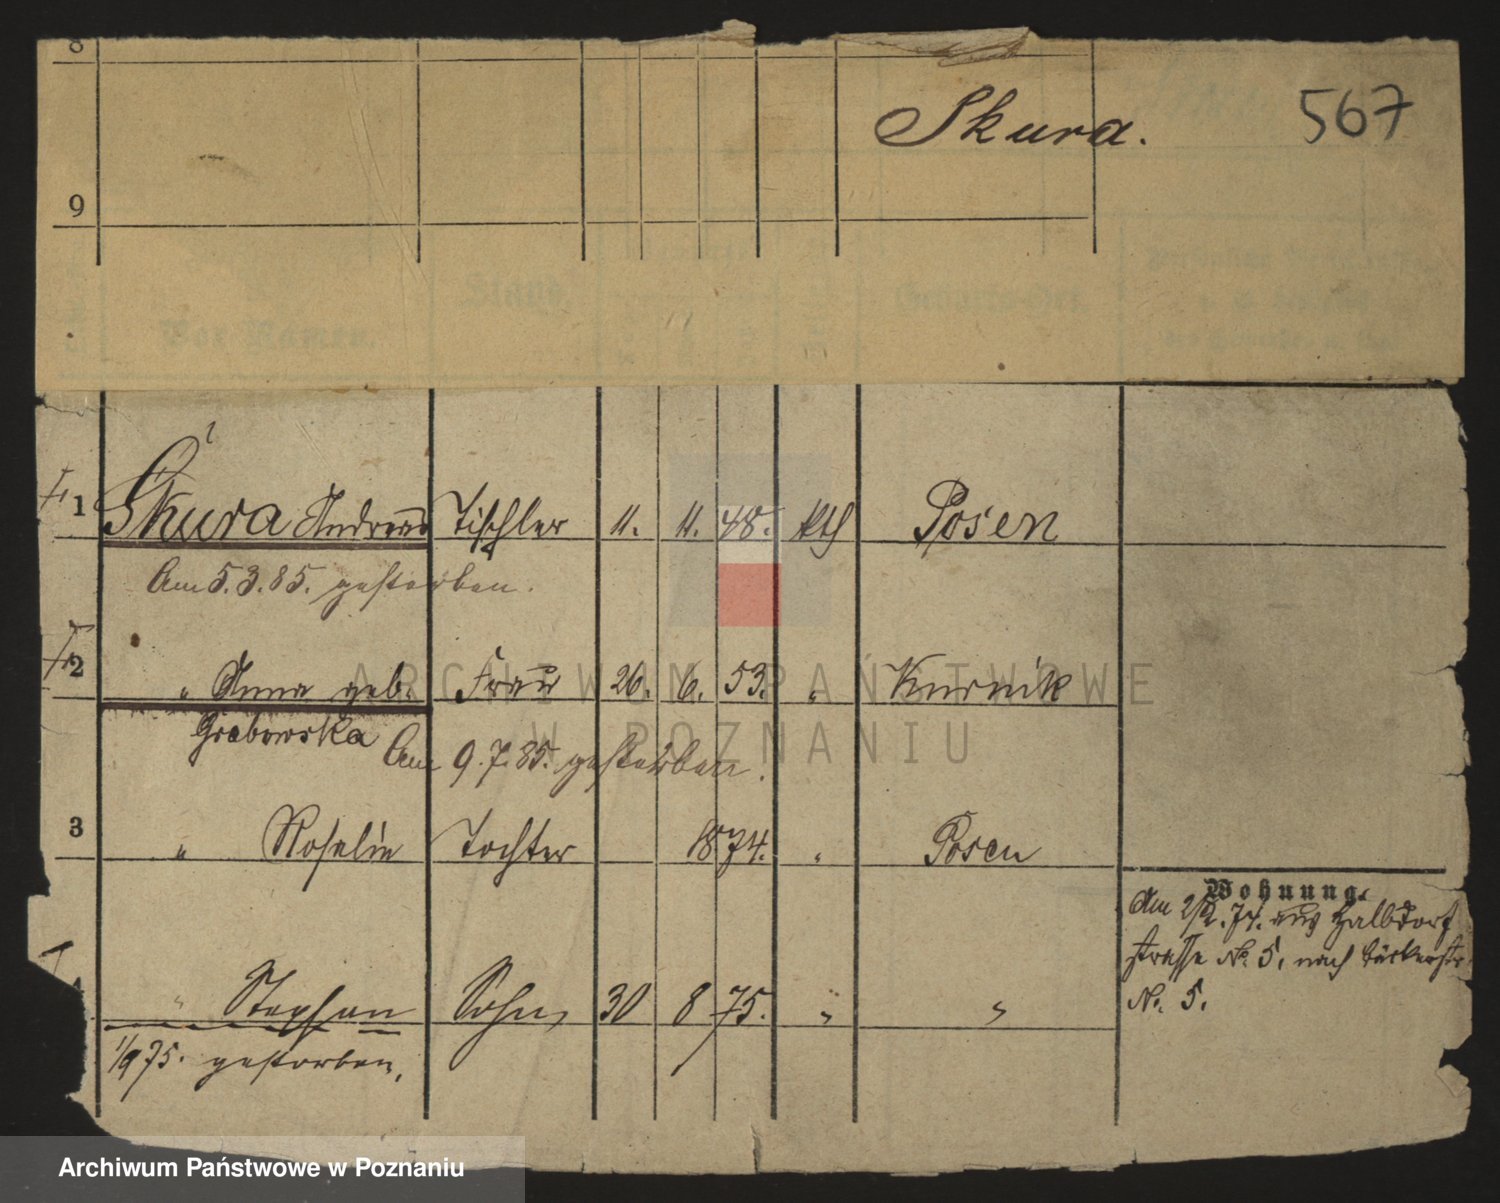 8
Skura.
567
9
Vor Namen.
Stand,
Geburts-Ort.
1 Skura Andreas Tischler 11. 11. 48. kth Posen
Am 5.3.85. gestorben.
2 " Anna geb. Frau 26. 6. 53. " Kurnik
Grabowska Am 9.7.85. gestorben.
3 " Rosalie Tochter 1874. " Posen
" Stephan Sohn, 30 8 75. " "
1/9 75. gestorben.
Wohnung.
Am 2/2. 74. aus Halbdorf
strasse No 5, nach Bäckerstr.
No. 5.
ARCHIWUM PAŃSTWOWE
W POZNANIU
Archiwum Państwowe w Poznaniu